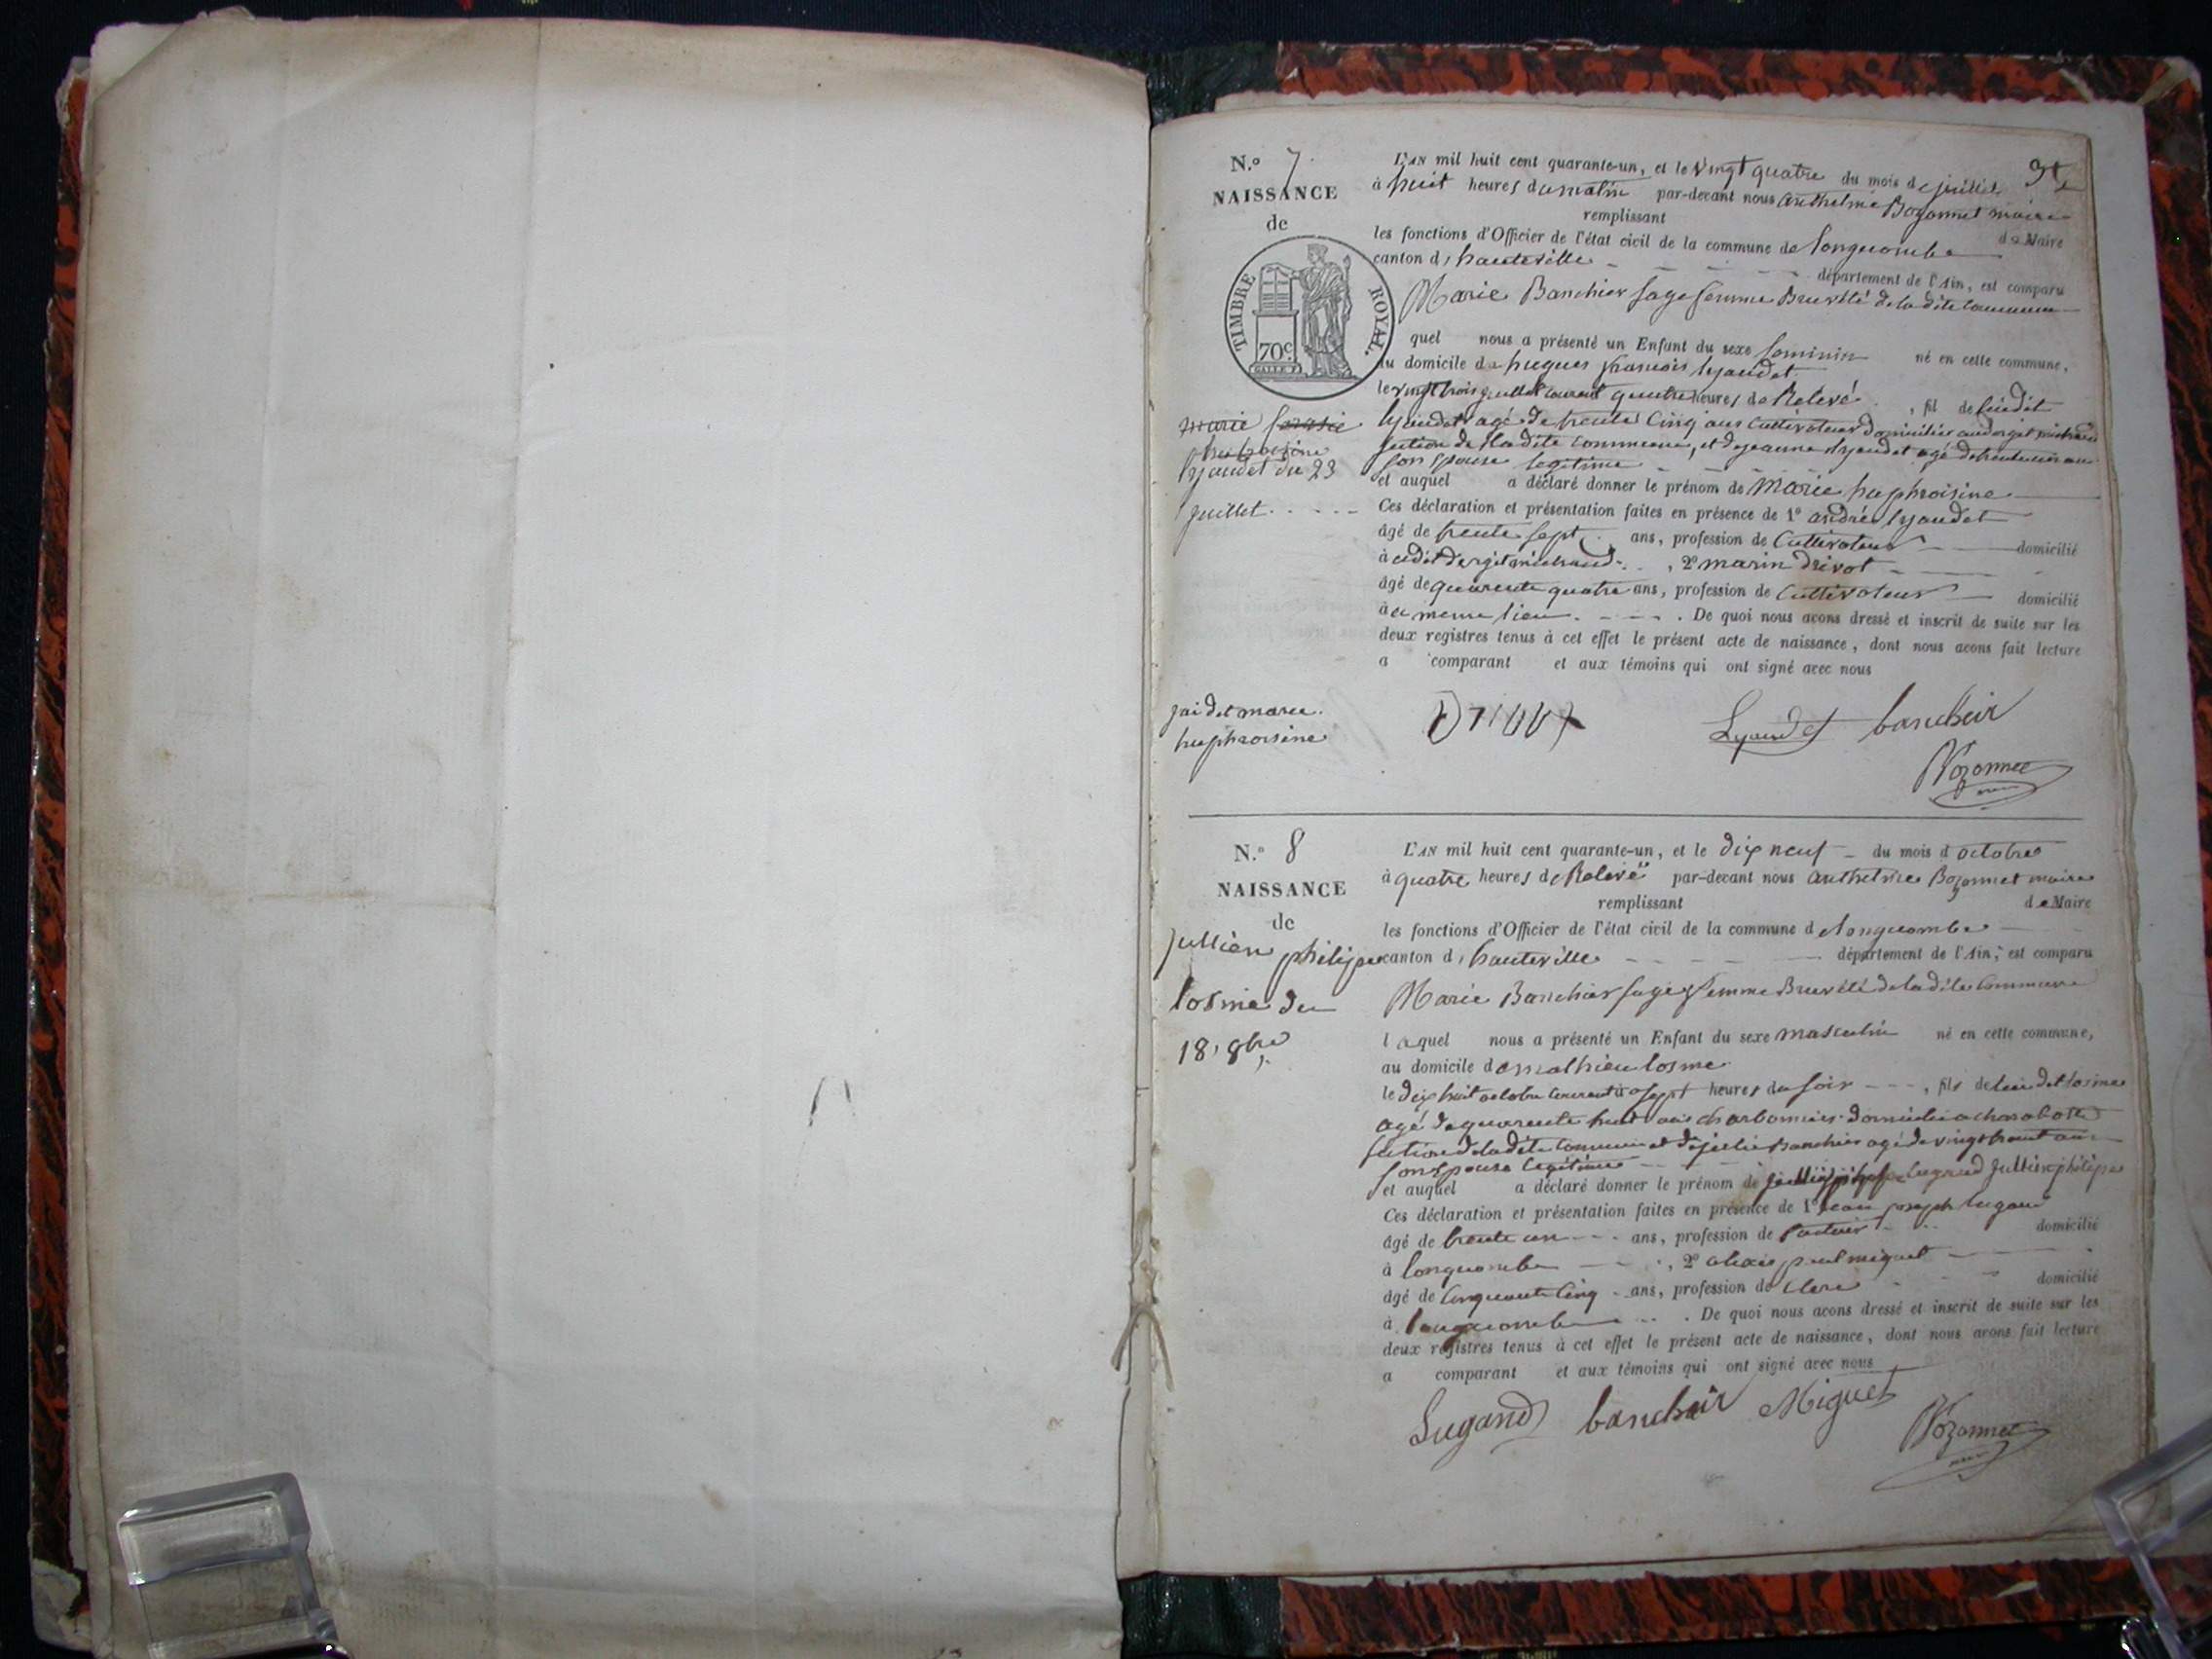 N.° 7
NAISSANCE
de
TIMBRE ROYAL.
70c.
marie
Lyaudet du 23
Juillet
jai dit marie
huphroisine
L'AN mil huit cent quarante-un, et le vingt quatre du mois de juillet
à huit heures du matin par-devant nous anthelme Bozonnet maire
remplissant de Maire
les fonctions d'Officier de l'état civil de la commune de longecombe
canton d, hauteville département de l'Ain, est comparu
Marie Banchier sage femme Brevété de la dite commune
quel nous a présenté un Enfant du sexe feminin né en cette commune,
au domicile de hugues francois lyaudet
le vingt trois juillet courant quatre heures de Relevé , fil de
lyaudet agé de trente cinq ans cultivateur domicilier
section de la dite commune, et de jeanne lyaudet agé de
son epouse legitime
et auquel a déclaré donner le prénom de marie huphroisine
Ces déclaration et présentation faites en présence de 1° andré lyaudet
âgé de trente sept ans, profession de Cultivateur domicilié
à , 2° marin drivot
âgé de quarente quatre ans, profession de Cultivateur domicilié
à a meme lieu . De quoi nous avons dressé et inscrit de suite sur les
deux registres tenus à cet effet le présent acte de naissance, dont nous avons fait lecture
a comparant et aux témoins qui ont signé avec nous
Lyaudet bancheir
Bozonnet
N.° 8
NAISSANCE
de
Jullien philipe
losme du
18, 8bre
L'AN mil huit cent quarante-un, et le dix neuf du mois d octobre
à quatre heures de Relevé par-devant nous anthelme Bozonnet maire
remplissant de Maire
les fonctions d'Officier de l'état civil de la commune d elongecombe
canton d, hauteville département de l'Ain, est comparu
Marie Banchier sage femme Brevété de la dite Commune
l aquel nous a présenté un Enfant du sexe masculin né en cette commune,
au domicile de mathieu losme
le dix huit octobre courant à sept heures du soir , fils de losme
agé de quarente huit ans charbonnier domicilié a
section de la dite commune et de julie Banchier agé de vingt huit ans
son epouse legitime
et auquel a déclaré donner le prénom de Jullien philipe
Ces déclaration et présentation faites en présence de 1° jean joseph lugand
âgé de trente un ans, profession de domicilié
à longecombe , 2° alexis miguet
âgé de cinquante cinq ans, profession de Clerc domicilié
à longecombe . De quoi nous avons dressé et inscrit de suite sur les
deux registres tenus à cet effet le présent acte de naissance, dont nous avons fait lecture
a comparant et aux témoins qui ont signé avec nous
Lugand bancheir Miguet
Bozonnet